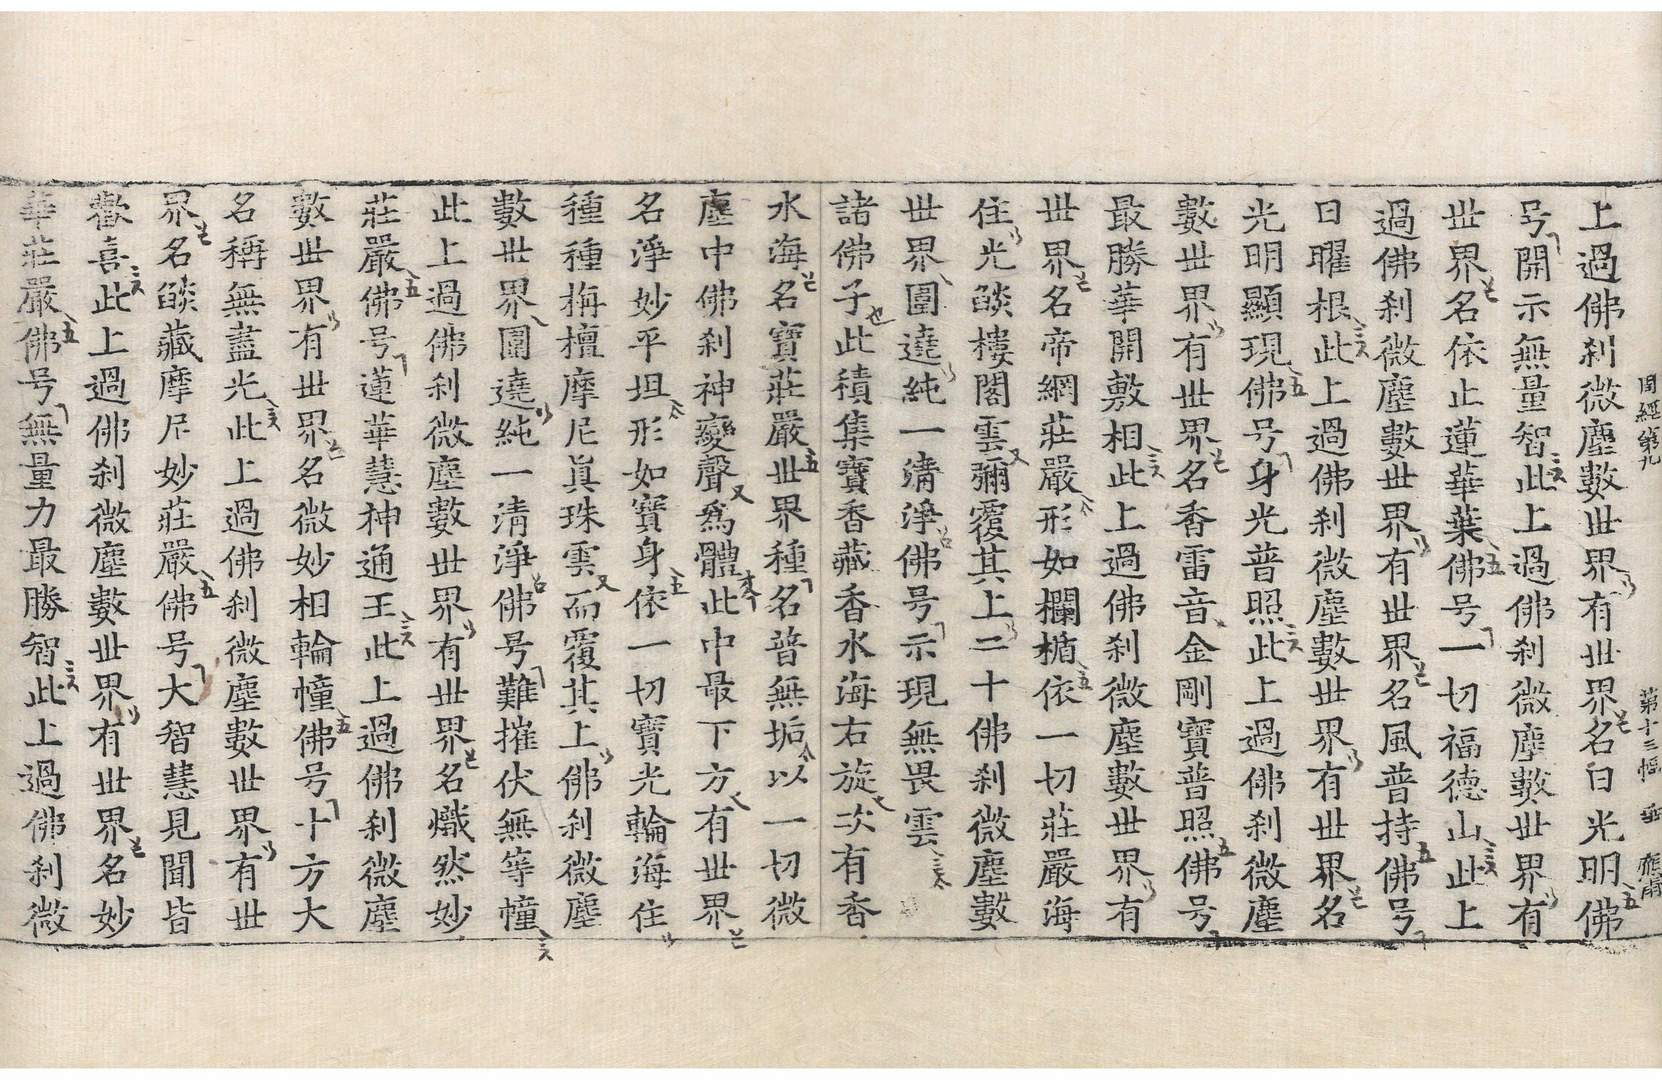 周經第九　第十三幅　垂
上過佛刹微塵數世界有世界名曰光明佛
号開示無量智此上過佛刹微塵數世界有
世界名依止蓮華葉佛号一切福德山此上
過佛刹微塵數世界有世界名風普持佛号
日曜根此上過佛刹微塵數世界有世界名
光明顯現佛号身光普照此上過佛刹微塵
數世界有世界名香雷音金剛寶普照佛号
最勝華開敷相此上過佛刹微塵數世界有
世界名帝網莊嚴形如欄楯依一切莊嚴海
住光燄樓閣雲彌覆其上二十佛刹微塵數
世界圍遶純一清淨佛号示現無畏雲
諸佛子此積集寶香藏香水海右旋次有香
水海名寶莊嚴世界種名普無垢以一切微
塵中佛刹神變聲爲體此中最下方有世界
名淨妙平坦形如寶身依一切寶光輪海住
種種栴檀摩尼眞珠雲而覆其上佛刹微塵
數世界圍遶純一清淨佛号難摧伏無等幢
此上過佛刹微塵數世界有世界名熾然妙
莊嚴佛号蓮華慧神通王此上過佛刹微塵
數世界有世界名微妙相輪幢佛号十方大
名稱無盡光此上過佛刹微塵數世界有世
界名燄藏摩尼妙莊嚴佛号大智慧見聞皆
歡喜此上過佛刹微塵數世界有世界名妙
華莊嚴佛号無量力最勝智此上過佛刹微